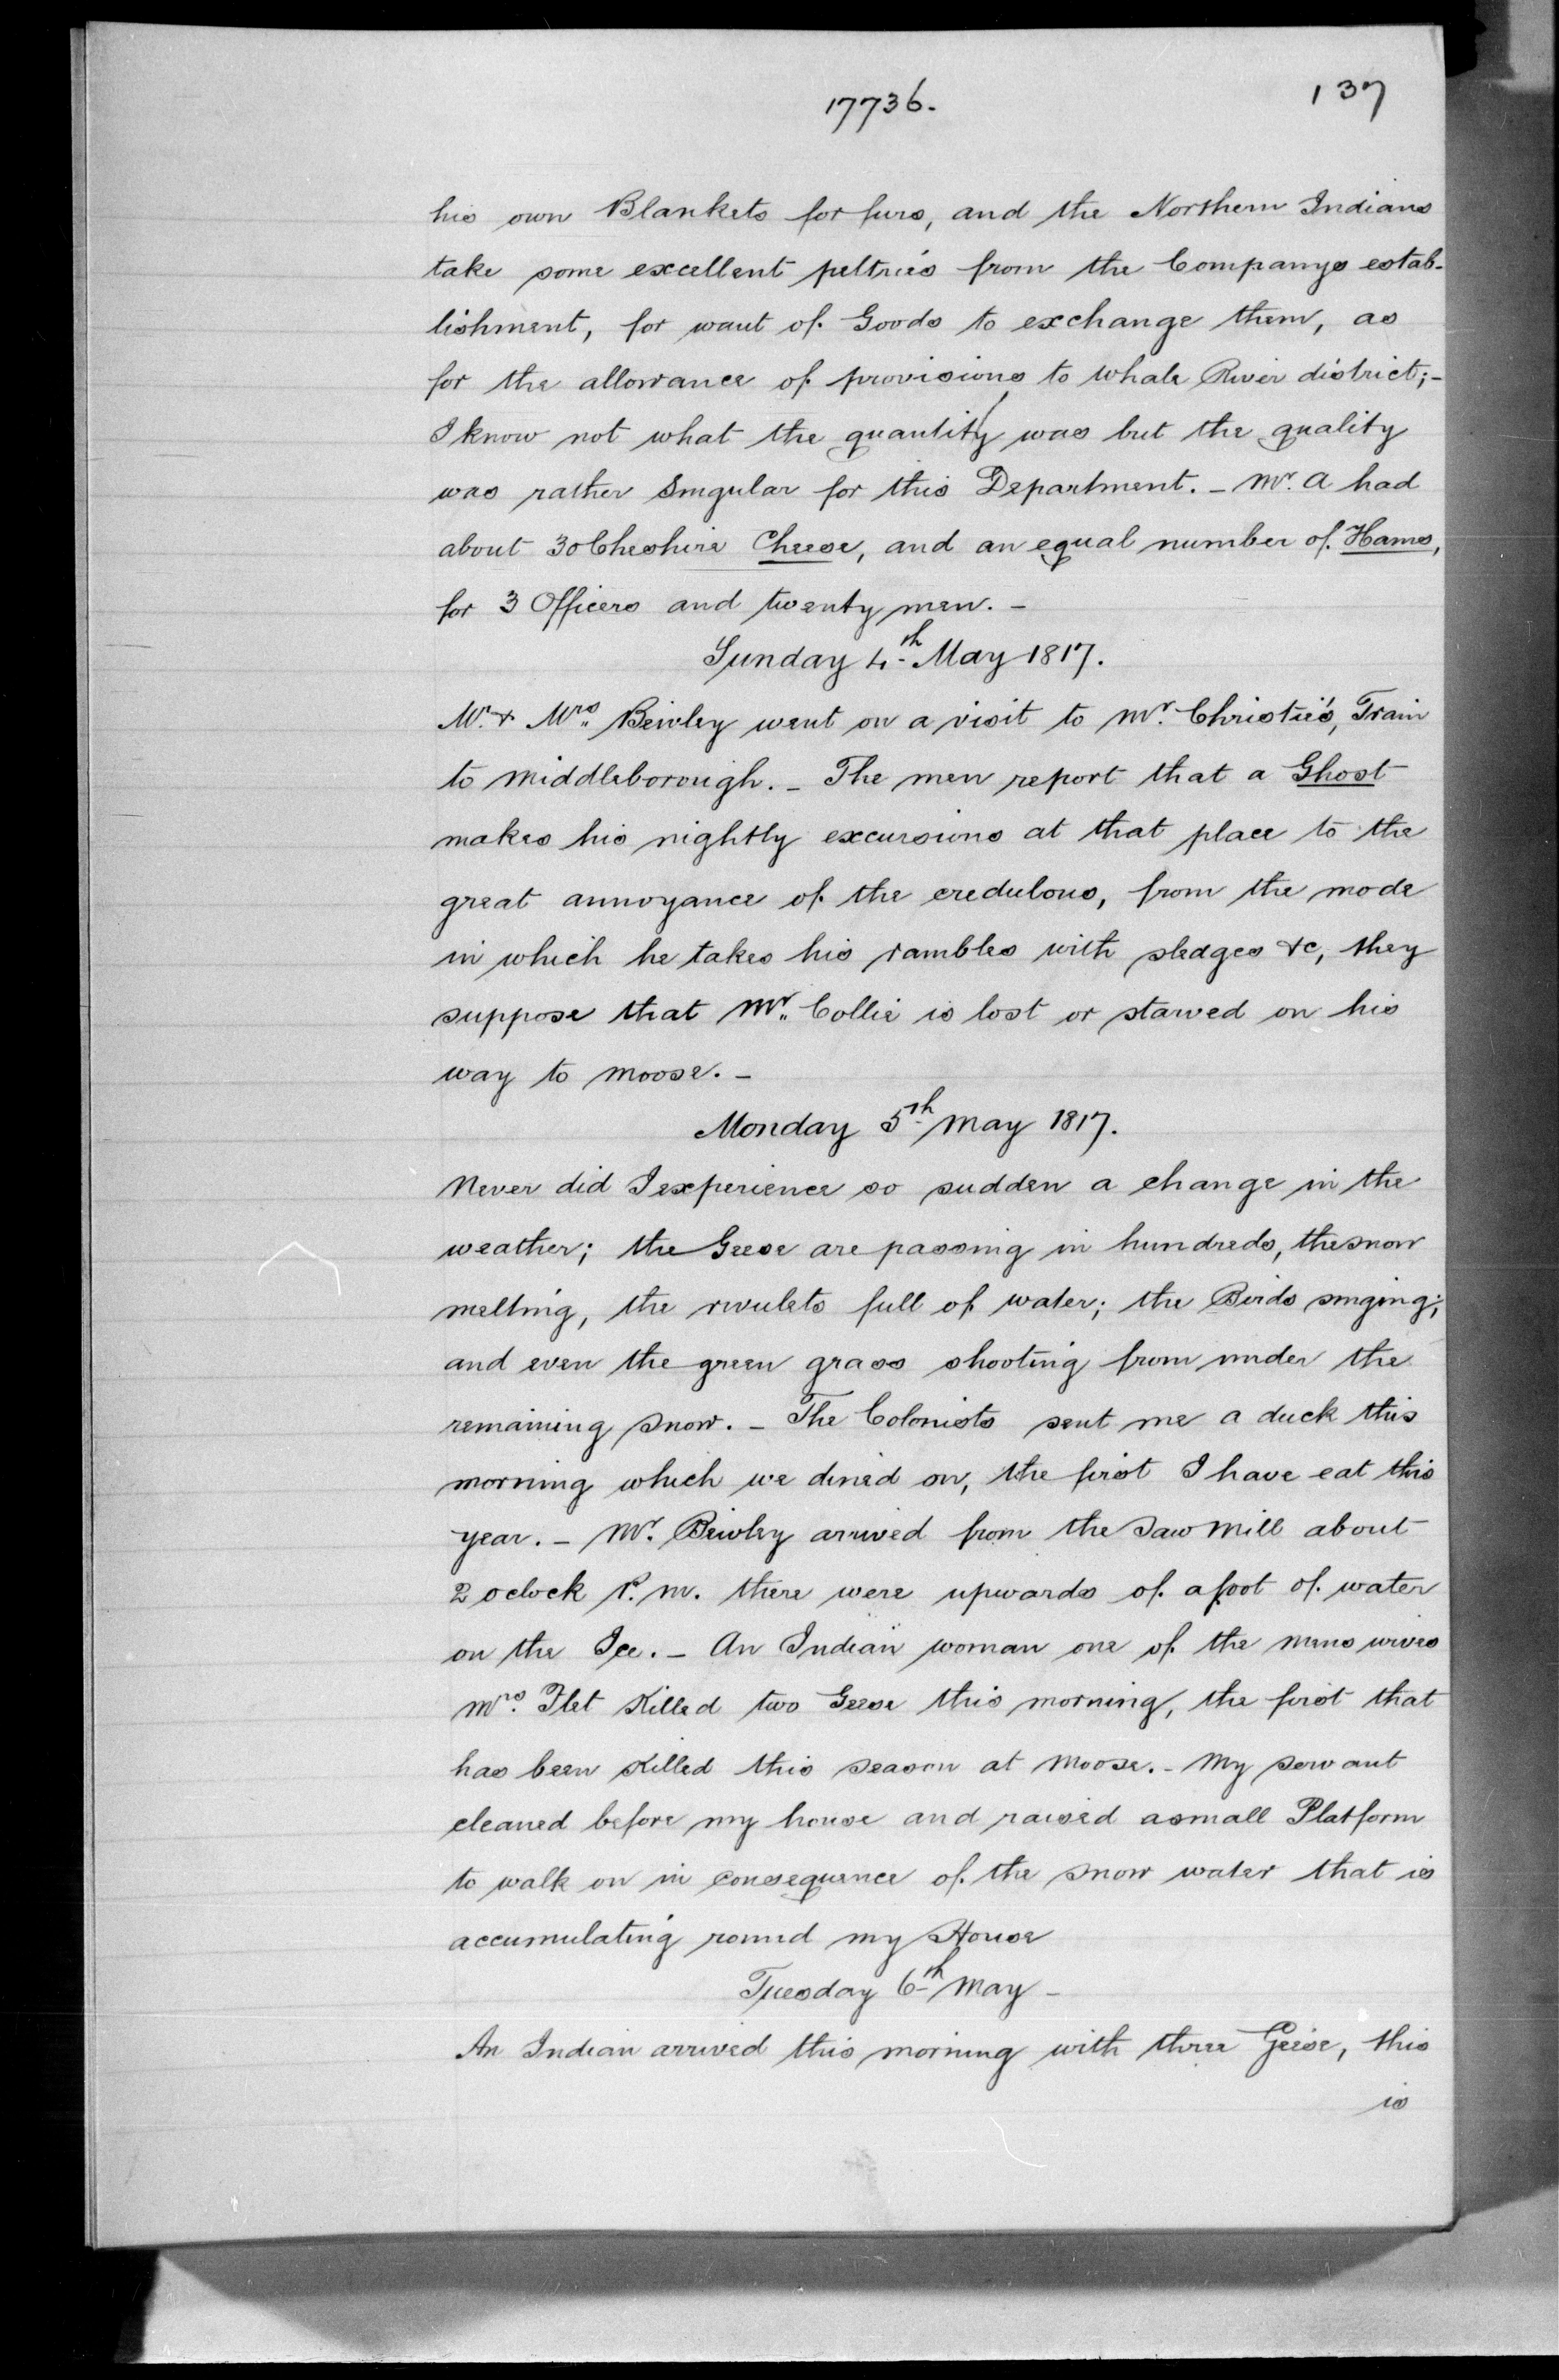 17736.
137
his own Blankets for furs, and the Northern Indians
take some excellent peltries from the Companys estab-
lishment, for want of Goods to exchange them, as
for the allowance of provisions to Whale River district;-
I know not what the quantity was but the quality
was rather singular for this Department. - Mr. A had
about 30 Cheshire Cheese, and an equal number of Hams,
for 3 Officers and twenty men. -
Sunday 4th May 1817.
Mr. & Mrs. Beivley went on a visit to Mr. Christie's, Train
to Middleborough. - The men report that a Ghost
makes his nightly excursions at that place to the
great annoyance of the credulous, from the mode
in which he takes his rambles with sledges &c, they
suppose that Mr. Collie is lost or starved on his
way to Moose. -
Monday 5th May 1817.
Never did I experience so sudden a change in the
weather; the Geese are passing in hundreds, the snow
melting, the rivulets full of water; the Birds singing;
and even the green grass shooting from under the
remaining snow. - The Colonists sent me a duck this
morning which we dined on, the first I have eat this
year. - Mr. Beivley arrived from the Saw Mill about
2 oclock P.M. there were upwards of a foot of water
on the Ice. - An Indian woman one of the mens wives
Mrs. Flet Killed two Geese this morning, the first that
has been Killed this season at Moose. - My servant
cleaned before my house and raised a small Platform
to walk on in consequence of the snow water that is
accumulating round my House
Tuesday 6th May -
An Indian arrived this morning with three Geese, this
is